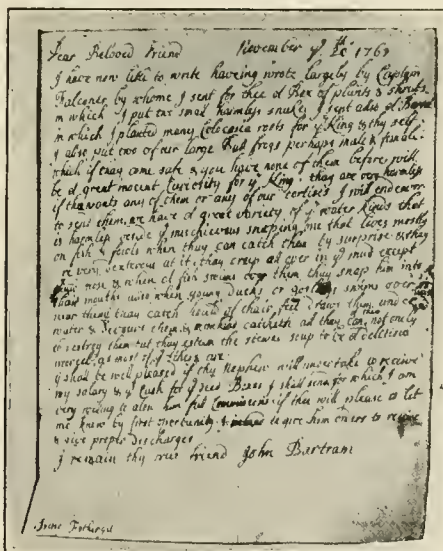 Dear Beloved Friend November ye 28th 1769
I have now litle to write haveing wrote largely by Captain
Falconer by whome I sent for thee a Box of plants & shrubs
in which I put two small harmless snakes I sent also a Barrel
in which I planted many Colocasia roots for ye King & thy self
I also put two of our large Bull frogs perhaps male & female
which if thay come safe & you have none of them before will
be a great curiosity for ye King thay are very harmless
if thee wants any of them or any of our tortises I will endevor
to send them, we have a great variety of ye water kinds that
is harmless beside ye mischievous snaping one that lives mostly
on fish & fowls when thay can catch them by surprise & thay
are very dexterous at it thay creep all over in ye mud except
thair nose & when a fish swims over them thay snap him into
thair mouths also when young Ducks or goslings swims over or
near them thay catch hould of thair feet draws them under
water & devours them & mankind catcheth all thay can not only
to destroy them but thay esteem the stewes soup to be a delitious
morcel, as most of ye
I shall be well pleased if thy Nephew will undertake to receive
my salary & ye Cash for ye seed Boxes I shall send for which I am
very willing to alow him full Commisions if thee will please to let
me know by first opertunity to give him orders to receive
& give proper discharges
I remain thy true friend John Bartram